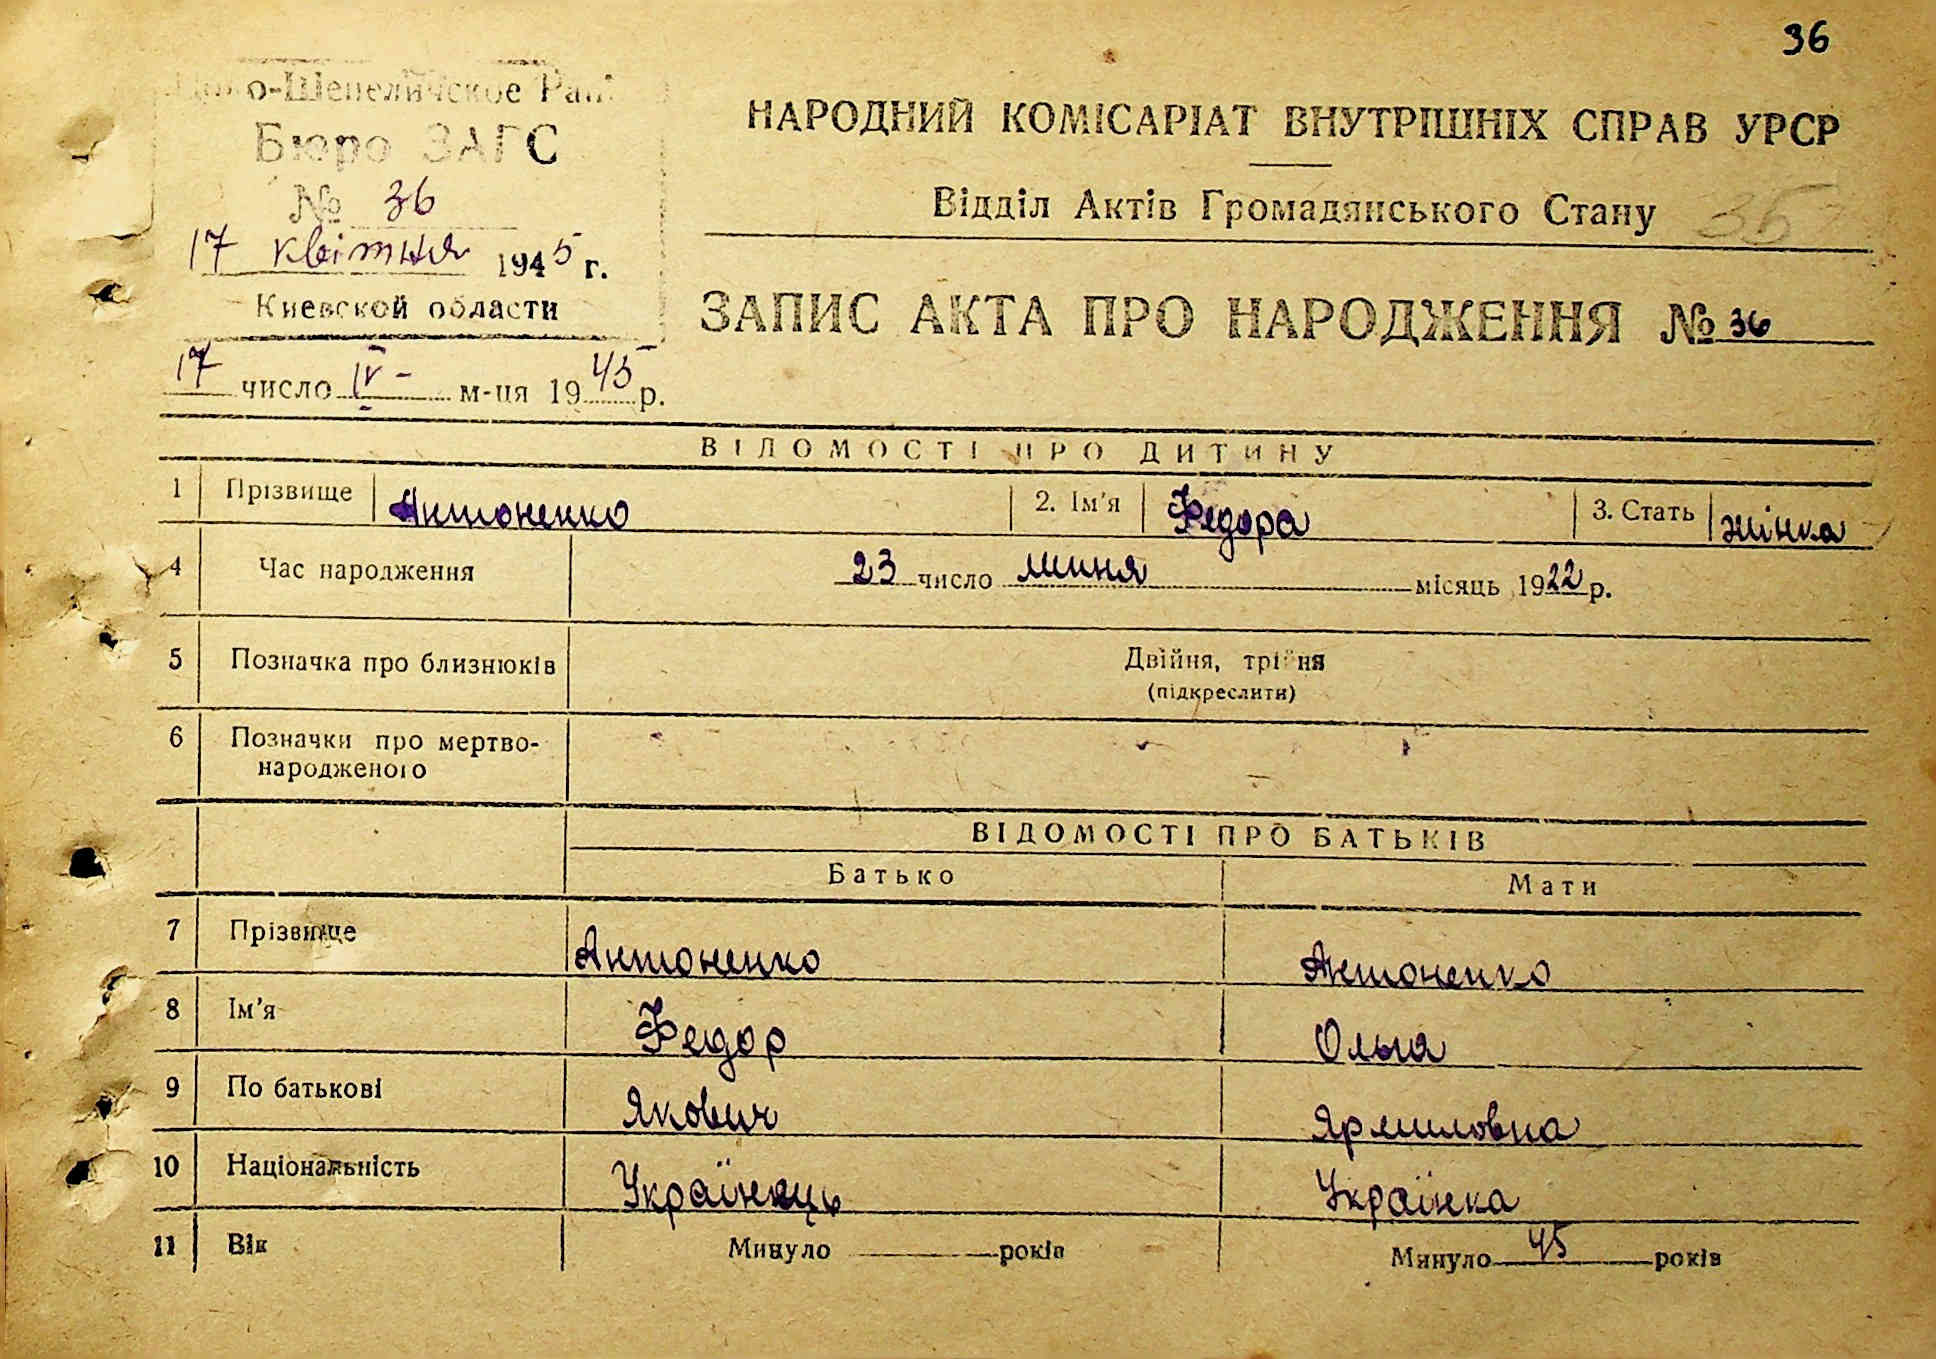 36
о-Шепеличское
Бюро ЗАГС
№ 36
17 квітня 1945 г.
Киевской области
17 число IV - м-ця 1945 р.
НАРОДНИЙ КОМІСАРІАТ ВНУТРІШНІХ СПРАВ УРСР
Відділ Актів Громадянського Стану
ЗАПИС АКТА ПРО НАРОДЖЕННЯ № 36
ВІДОМОСТІ ПРО ДИТИНУ
1 Прізвище Антоненко 2. Ім'я Федора 3. Стать жінка
4 Час народження 23 число липня місяць 1922 р.
5 Позначка про близнюків Двійня, трійня
(підкреслити)
6 Позначки про мертво-
народженого
ВІДОМОСТІ ПРО БАТЬКІВ
Батько Мати
7 Прізвище Антоненко Антоненко
8 Ім'я Федор Ольга
9 По батькові Якович Ярмиловна
10 Національність Українець Українка
11 Вік Минуло років Минуло 45 років